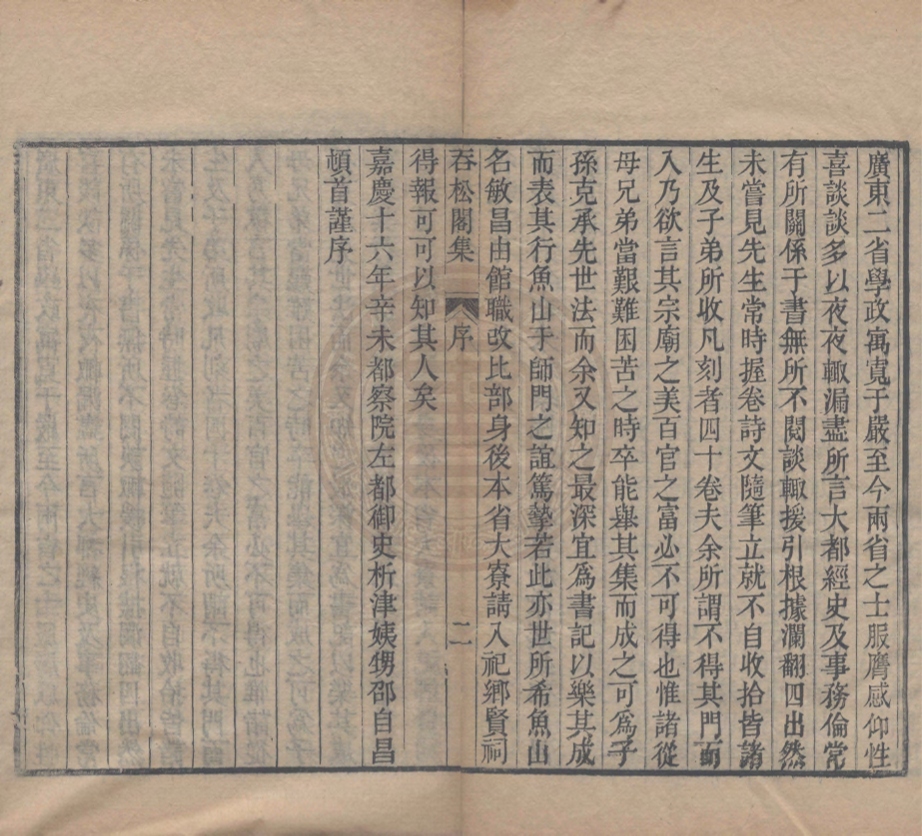 廣東二省學政寓寬于嚴至今兩省之士服膺感仰性
喜談談多以夜夜輙漏盡所言大都經史及事務倫常
有所關係于書無所不閱談輙援引根據瀾翻四出然
未嘗見先生常時握卷詩文隨筆立就不自收拾皆諸
生及子弟所收凡刻者四十卷夫余所謂不得其門而
入乃欲言其宗廟之美百官之富必不可得也惟諸從
母兄弟當艱難困苦之時卒能舉其集而成之可爲子
孫克承先世法而余又知之最深宜爲書記以樂其成
而表其行魚山于師門之誼篤摯若此亦世所希魚山
名敏昌由館職改比部身後本省大寮請入祀鄉賢祠
吞松閣集 序 二
得報可可以知其人矣
嘉慶十六年辛未都察院左都御史析津姨甥邵自昌
頓首謹序